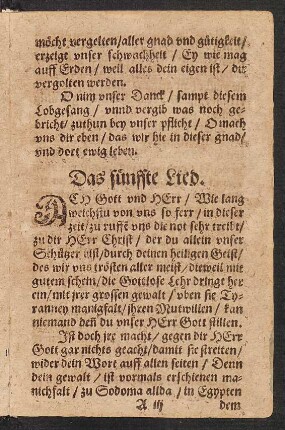 möcht vergelten/aller gnad vnd gütigkeit/
erzeigt vnser schwachheit / Ey wie mag
auff Erden / weil alles dein eigen ist / dir
vergolten werden.
O nim vnser Danck / sampt diesem
Lobgesang / vnnd vergib was noch ge-
bricht/zuthun bey vnser pflicht / O mach
vns dir eben / das wir hie in dieser gnad/
vnd dort ewig leben.
Das fünffte Lied.
ACH Gott vnd HErr / Wie lang
weichstu von vns so ferr / in dieser
zeit/zu rufft vns die not sehr treibt/
zu dir HErr Christ / der du allein vnser
Schützer bist/durch deinen heiligen Geist/
des wir vns trösten aller meist / dieweil mit
gutem schein/die Gottlose Lehr dringt her
ein/mit jrer grossen gewalt / vben sie Ty-
ranney manigfalt/jhren Mutwillen / kan
niemand denn du vnser HErr Gott stillen.
Ist doch jre macht / gegen dir HErr
Gott gar nichts geacht/damit sie streiten/
wider dein Wort auff allen seiten / Denn
dein gewalt / ist vormals erschienen ma-
nichfalt / zu Sodoma allda / in Egypten
A iij dem